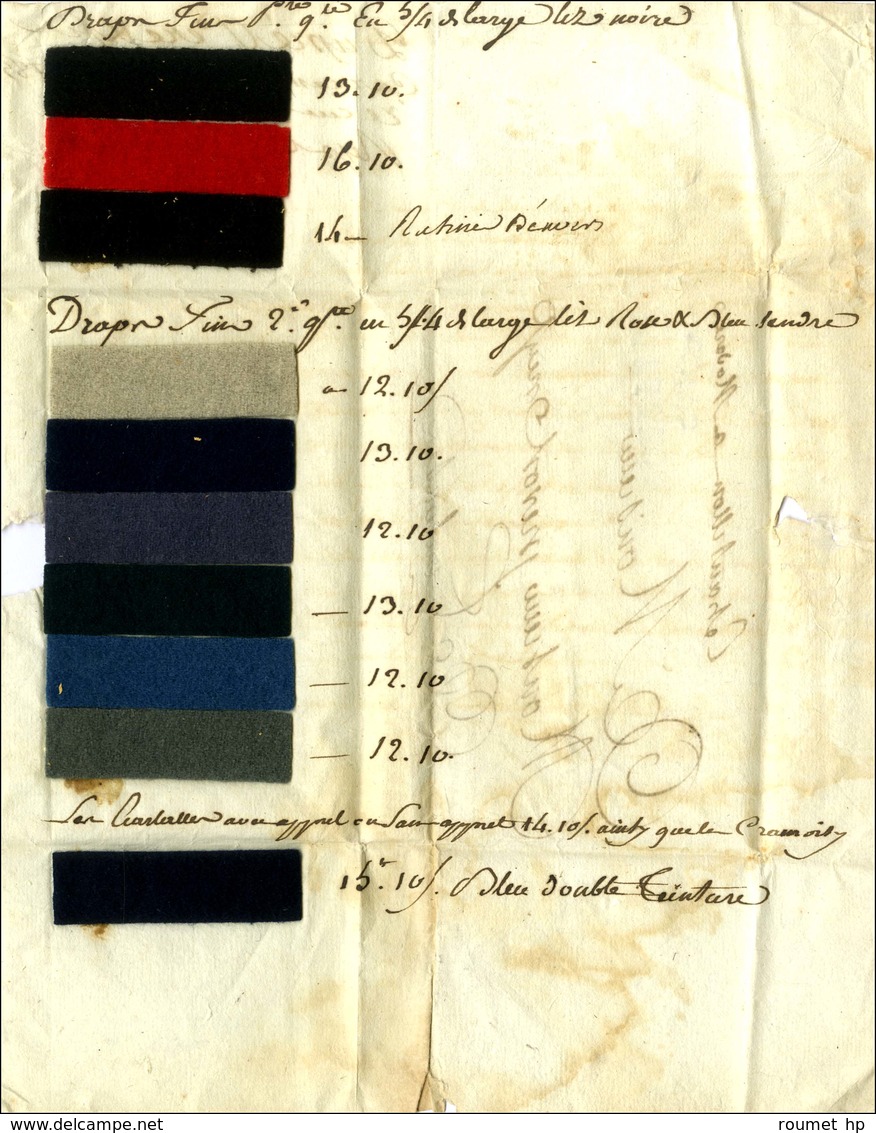 Draps Fins P.re q.te En 5/4 de large liz noire
13. 10.
16. 10.
14 — Ratine d'Envers
Draps Fins 2.e q.te en 5/4 de large liz Rose & Bleu tendre
a 12. 10/
13. 10.
12. 10
— 13. 10
— 12. 10
— 12. 10.
Les Ecarlattes avec appret ou sans appret 14. 10/. ainsy que le Cramoisy
15. 10/. Bleu double teinture
Monsieur
www.delcampe.net
roumet hp